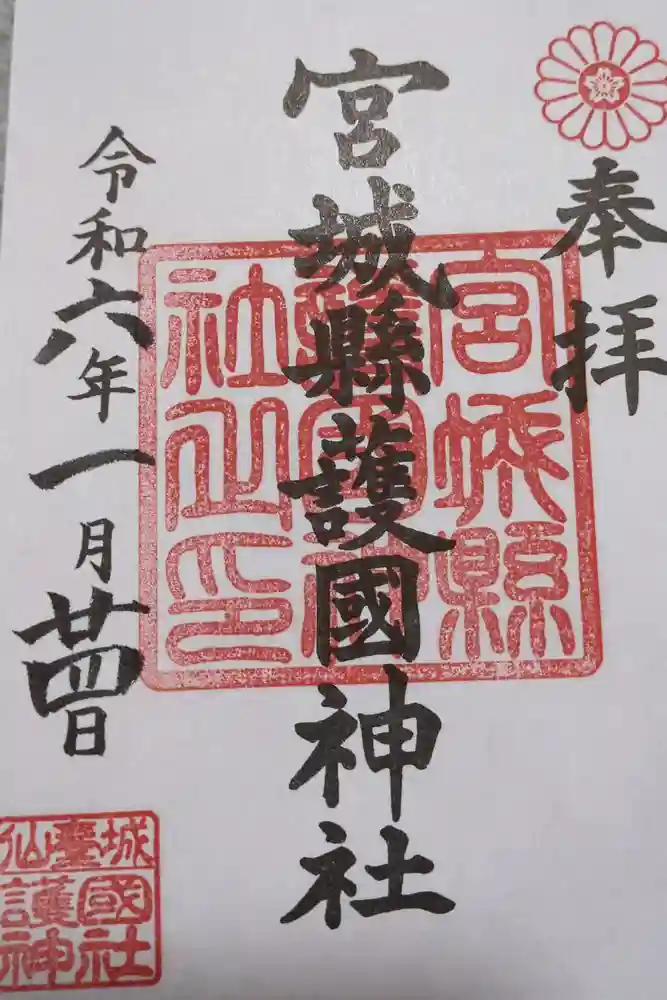 奉拝
宮城縣護國神社
令和六年一月廿四日
宮城縣
護國神
社之印
仙臺城
護國
神社